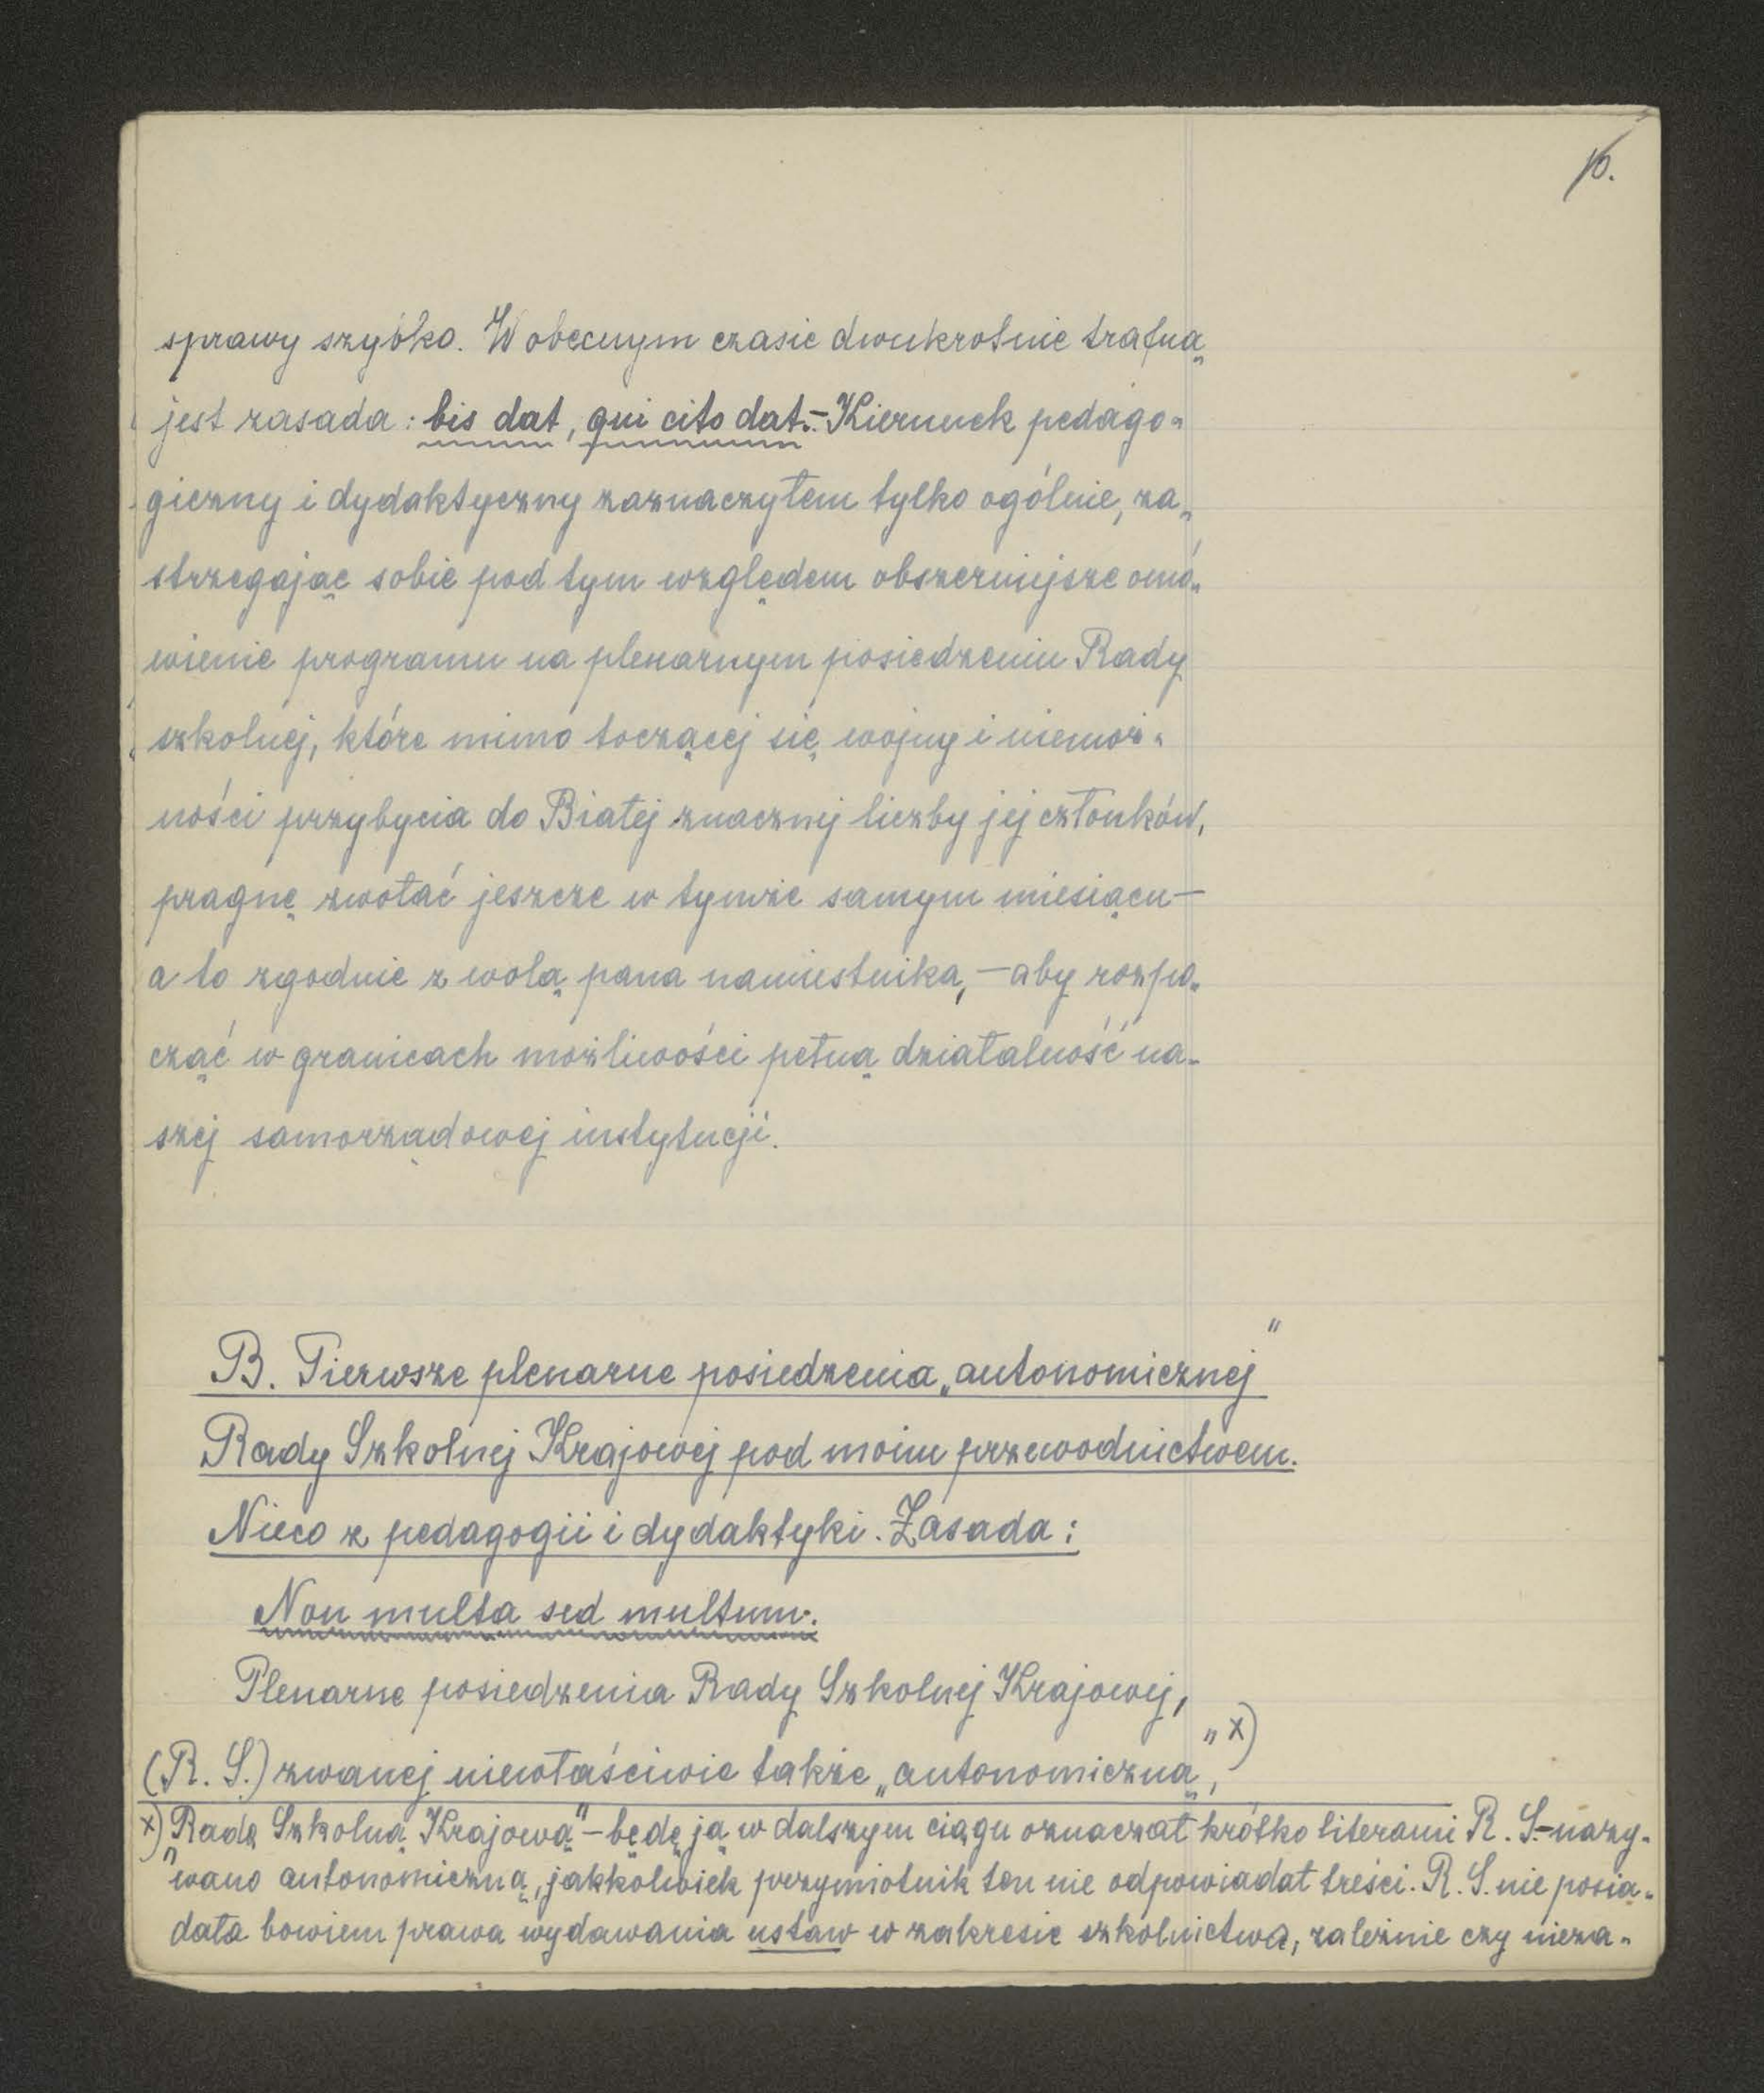 10.
sprawy szybko. W obecnym czasie dwukrotnie trafną
jest zasada: bis dat, qui cito dat.- Kierunek pedago-
giczny i dydaktyczny zaznaczyłem tylko ogólnie, za-
strzegając sobie pod tym względem obszerniejsze omó-
wienie programu na plenarnym posiedzeniu Rady
szkolnej, które mimo toczącej się wojny i niemoż-
ności przybycia do Białej znacznej liczby jej członków,
pragnę zwołać jeszcze w tymże samym miesiącu –
a to zgodnie z wolą pana namiestnika, – aby rozpo-
cząć w granicach możliwości pełną działalność na-
szej samorządowej instytucji.
B. Pierwsze plenarne posiedzenia „autonomicznej"
Rady Szkolnej Krajowej pod moim przewodnictwem.
Nieco z pedagogii i dydaktyki. Zasada:
Non multa sed multum.
Plenarne posiedzenia Rady Szkolnej Krajowej,
(R. S.) zwanej niewłaściwie także „autonomiczną", x)
x) „Radę Szkolną Krajową" – będę ją w dalszym ciągu oznaczał krótko literami R. S.- nazy-
wano autonomiczną, jakkolwiek przymiotnik ten nie odpowiadał treści. R. S. nie posia-
dała bowiem prawa wydawania ustaw w zakresie szkolnictwa, zależnie czy nieza-